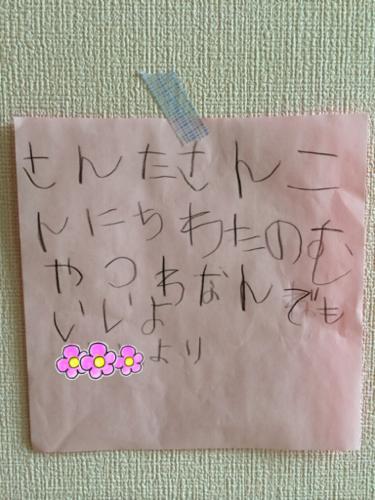 さんたさんこ
んにちわたのむ
やつわなんでも
いいよ
より